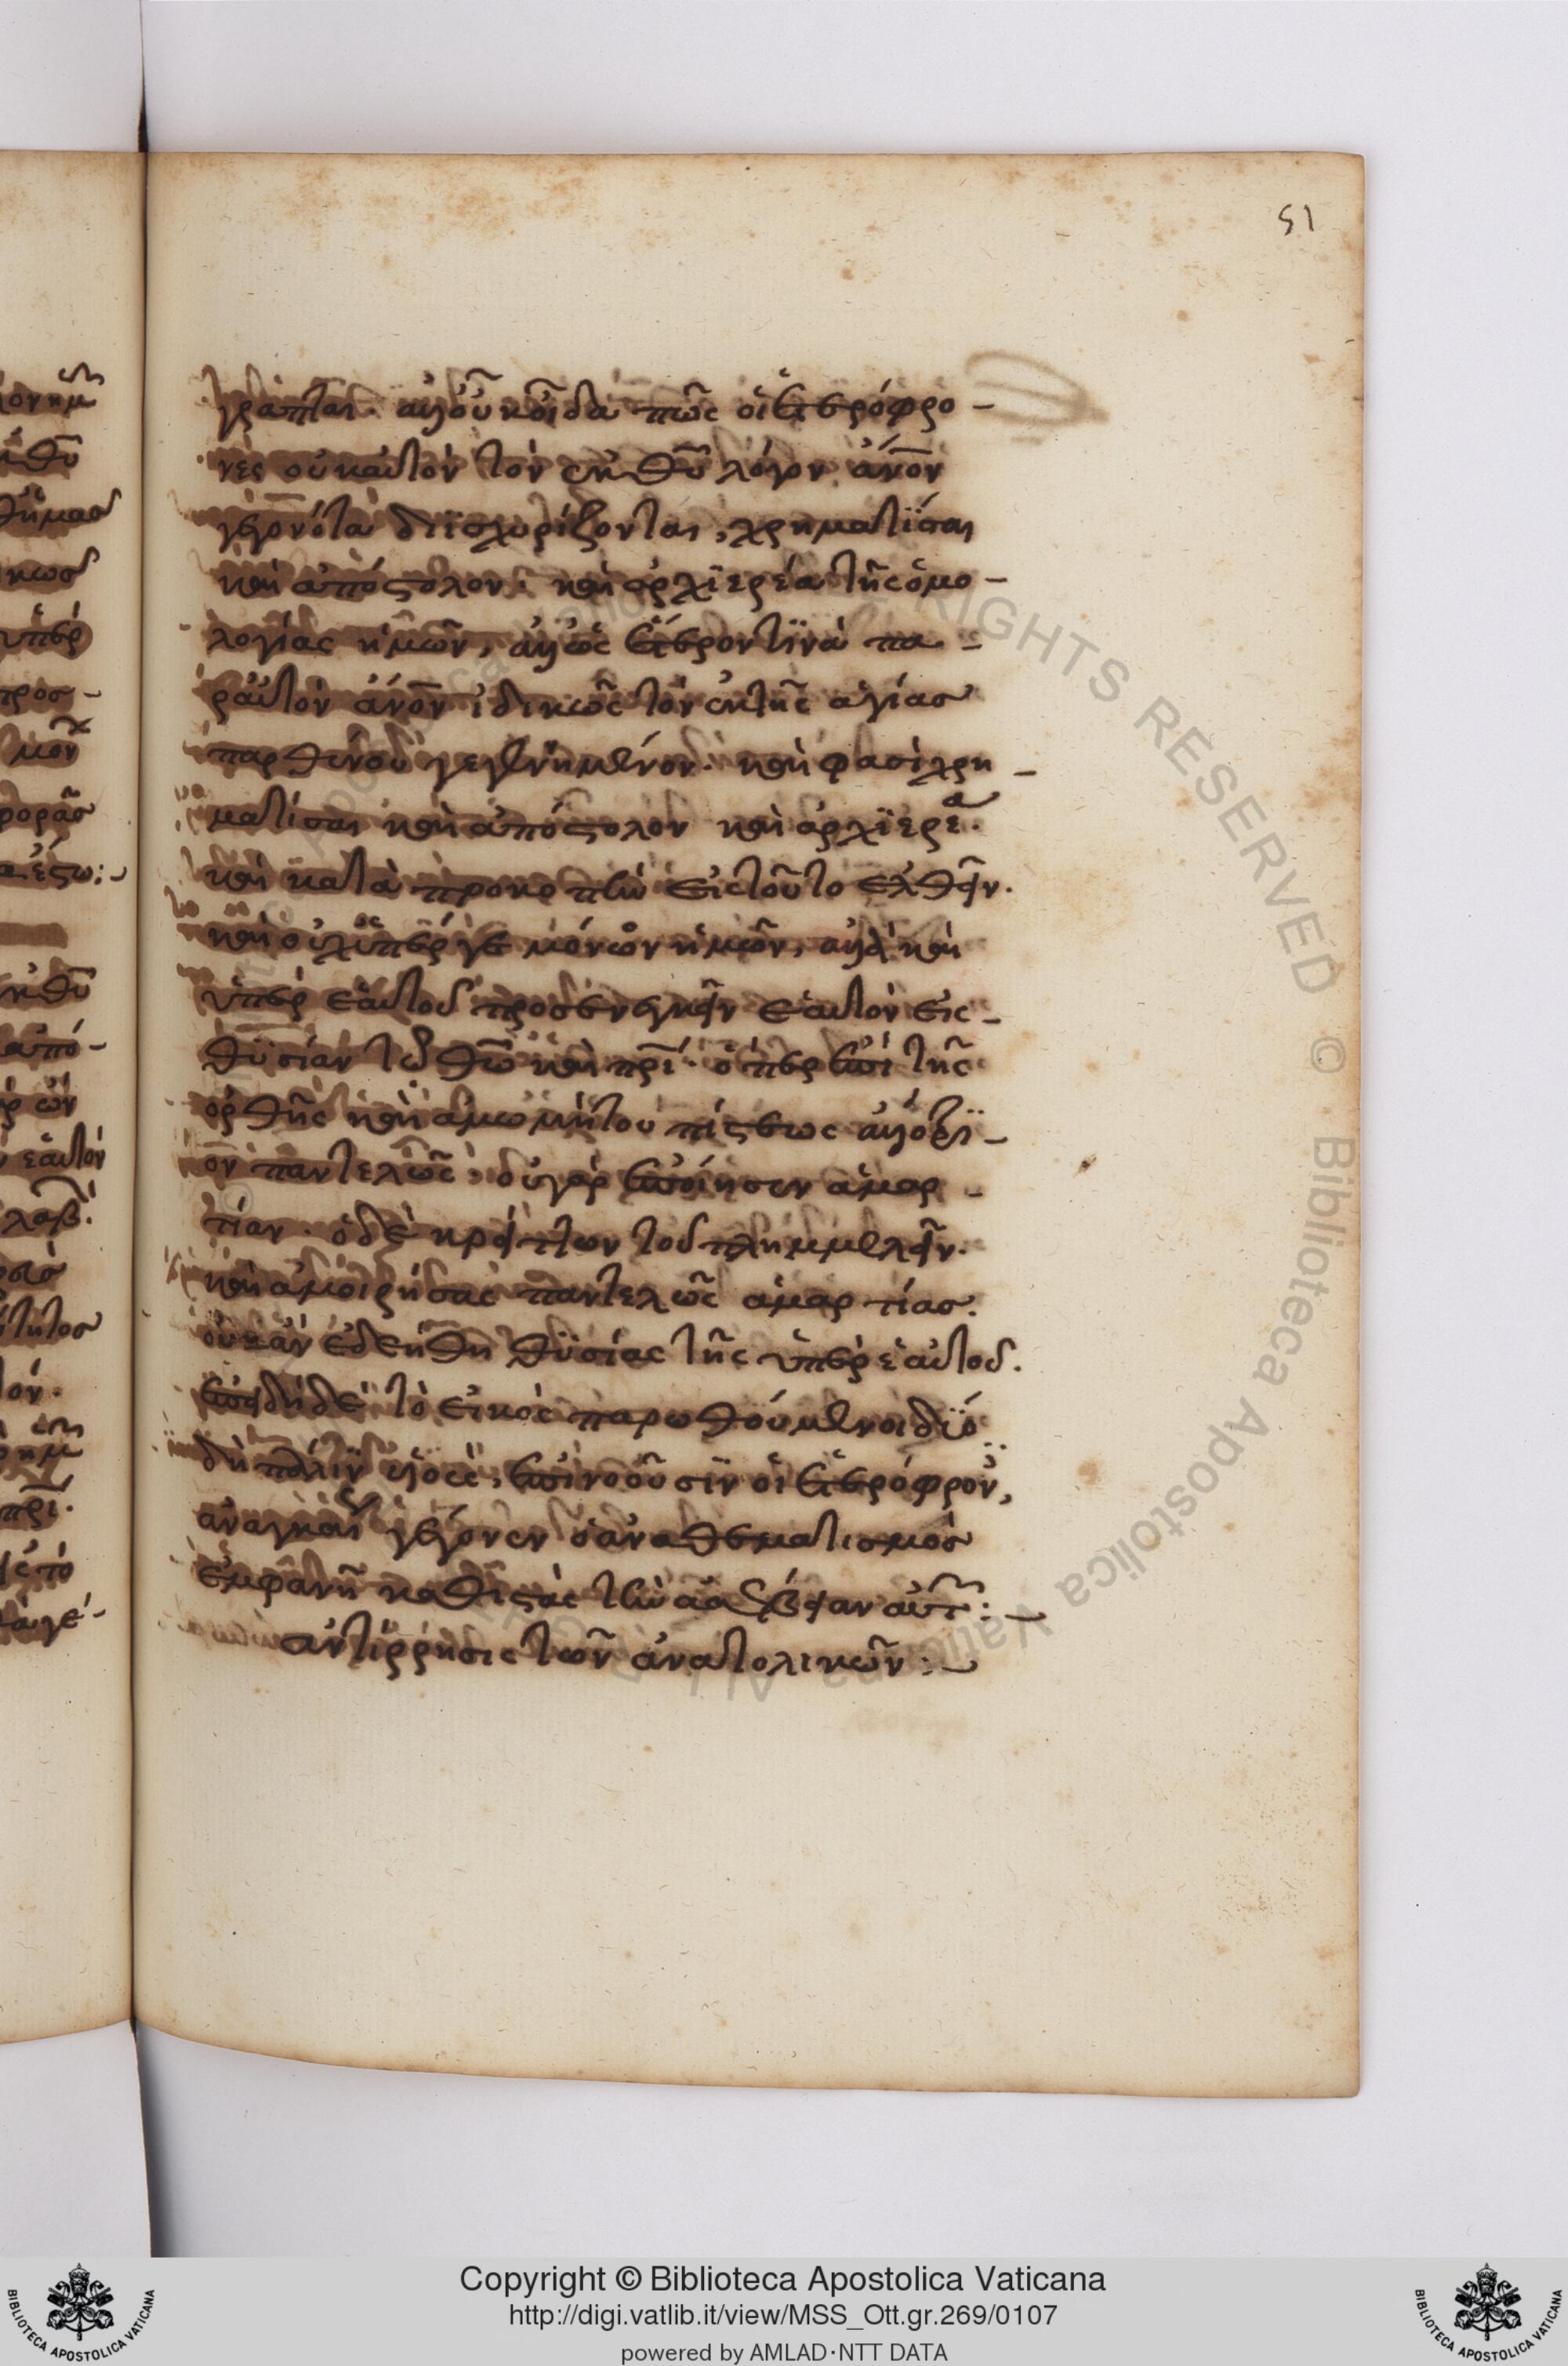 51
γραπται. ἀλλ' οὐκ οἶδα πῶς οἱ ἑτερόφρο-
νες οὐκ αὐτὸν τὸν ἐκ θυ λόγον ἄνον
γεγονότα διϊσχυρίζονται, χρηματίσαι
καὶ ἀπόστολον. καὶ ἀρχιερέα τῆς ὁμο-
λογίας ἡμῶν, ἀλλ' ὡς ἕτερον τινὰ πα-
ρ' αὐτὸν ἄνον ἰδικῶς τὸν ἐκ τῆς ἁγίας
παρθένου γεγεννημένον. καὶ φασὶ χρη-
ματίσαι καὶ ἀπόστολον καὶ ἀρχιερέα.
καὶ κατὰ προκοπὴν εἰς τοῦτο ἐλθεῖν.
καὶ οὐχ' ὑπέρ γε μόνων ἡμῶν, ἀλλὰ καὶ
ὑπὲρ ἑαυτοῦ προσενεγκεῖν ἑαυτὸν εἰς
θυσίαν τῷ θω καὶ πρί. ὅπερ ἐστὶ τῆς
ὀρθῆς καὶ ἀμωμήτου πίστεως ἀλλότρι-
ον παντελῶς, οὐ γὰρ ἐποίησεν ἁμαρ-
τίαν. ὁ δὲ κρείττων τοῦ πλημμελεῖν.
καὶ ἀμοιρήσας παντελῶς ἁμαρτίας.
οὐκ ἂν ἐδεήθη θυσίας τῆς ὑπὲρ ἑαυτοῦ.
ἐπειδὴ δὲ τὸ εἰκὸς παρωθούμενοι διὸ
δὴ πάλιν υἱοὺς, ἐπινοοῦσιν οἱ ἑτερόφρον,
ἀναγκαῖ γέγονεν ὁ ἀναθεματισμὸς
ἐμφανῆ καθιστὰς τὴν ἀσέβειαν αὐτ:
ἀντίρρησις τῶν ἀνατολικῶν:
Copyright © Biblioteca Apostolica Vaticana
http://digi.vatlib.it/view/MSS_Ott.gr.269/0107
powered by AMLAD·NTT DATA